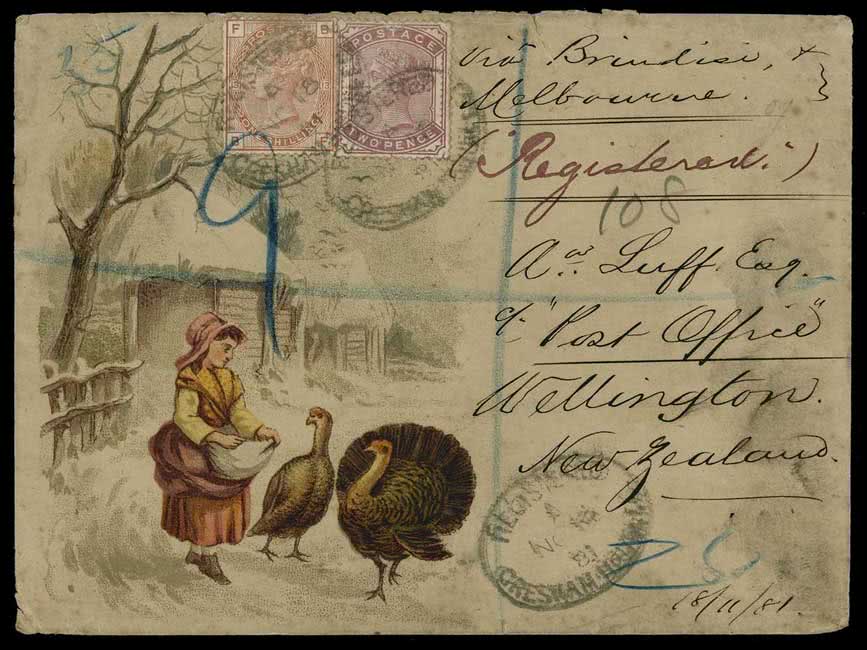 F B
POSTAGE
ONE SHILLING
B F
POSTAGE
TWO PENCE
Via Brindisi, &
Melbourne.
("Registered.")
108
Luff Esq.
c/- "Post Office"
Wellington.
New Zealand.
REGISTERED
A
NO 18
81
GRESHAM HOUSE
18/11/81.